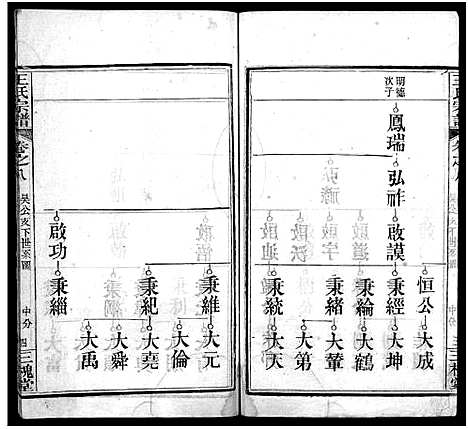 王氏宗譜
卷之八
吴公支下世系圖
中分
三槐堂
明德
次子
鳳瑞
弘祚
啟謨
恒公
大成
秉經
大坤
秉綸
大鶴
秉緒
大輦
大第
秉統
大天
秉維
大元
大倫
秉紀
大堯
大舜
啟功
秉緇
大禹
王氏宗譜
卷之八
吴公支下世系圖
中分
四
三槐堂